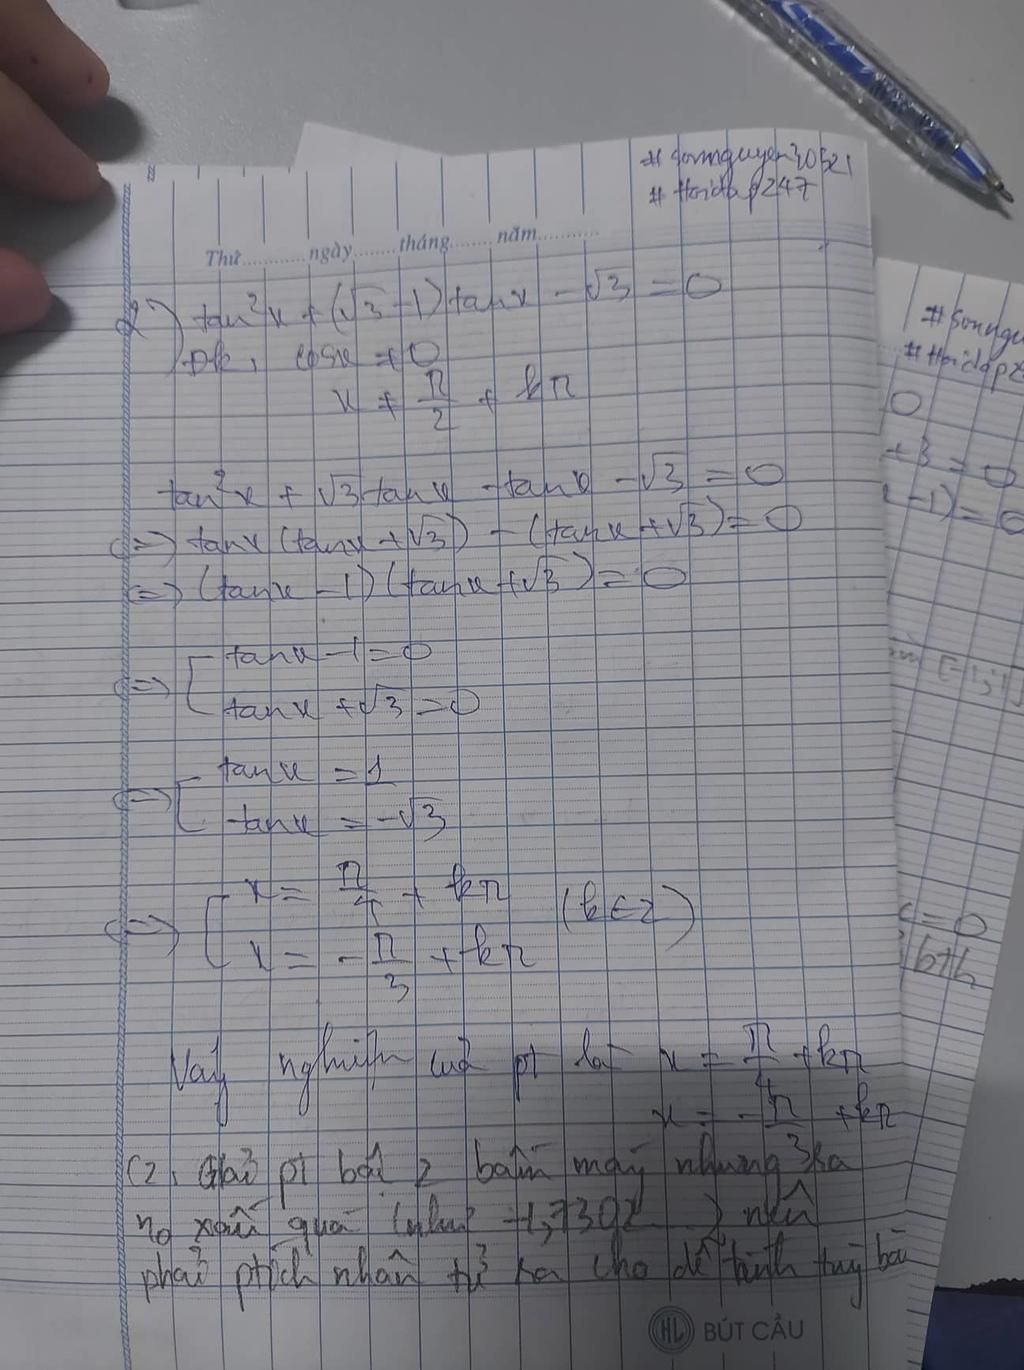 #sonnguyen30521
#Hoidap247
Thứ............ngày.......tháng.......năm............
2) tan²x + (√3 - 1)tanx - √3 = 0
Đk: cosx ≠ 0
x ≠ π/2 + kπ
tan²x + √3 tanx - tanx - √3 = 0
(=) tanx(tanx + √3) - (tanx + √3) = 0
(=) (tanx - 1)(tanx + √3) = 0
(=) [ tanx - 1 = 0
tanx + √3 = 0
(=) [ tanx = 1
tanx = -√3
(=) [ x = π/4 + kπ (k∈Z)
x = -π/3 + kπ
Vậy nghiệm của pt là x = π/4 + kπ
x = -π/3 + kπ
C2: Giải pt bậi 2 bấm máy nhưng ra
no xấu quá (như -1,7302 ) nên
phải ptích nhân tử ra cho dễ tính tuỳ bài
HL BÚT CẦU
#Sonngu
#Hoidap2
0
+3 = 0
-1) = 0
[-1;1]
= 0